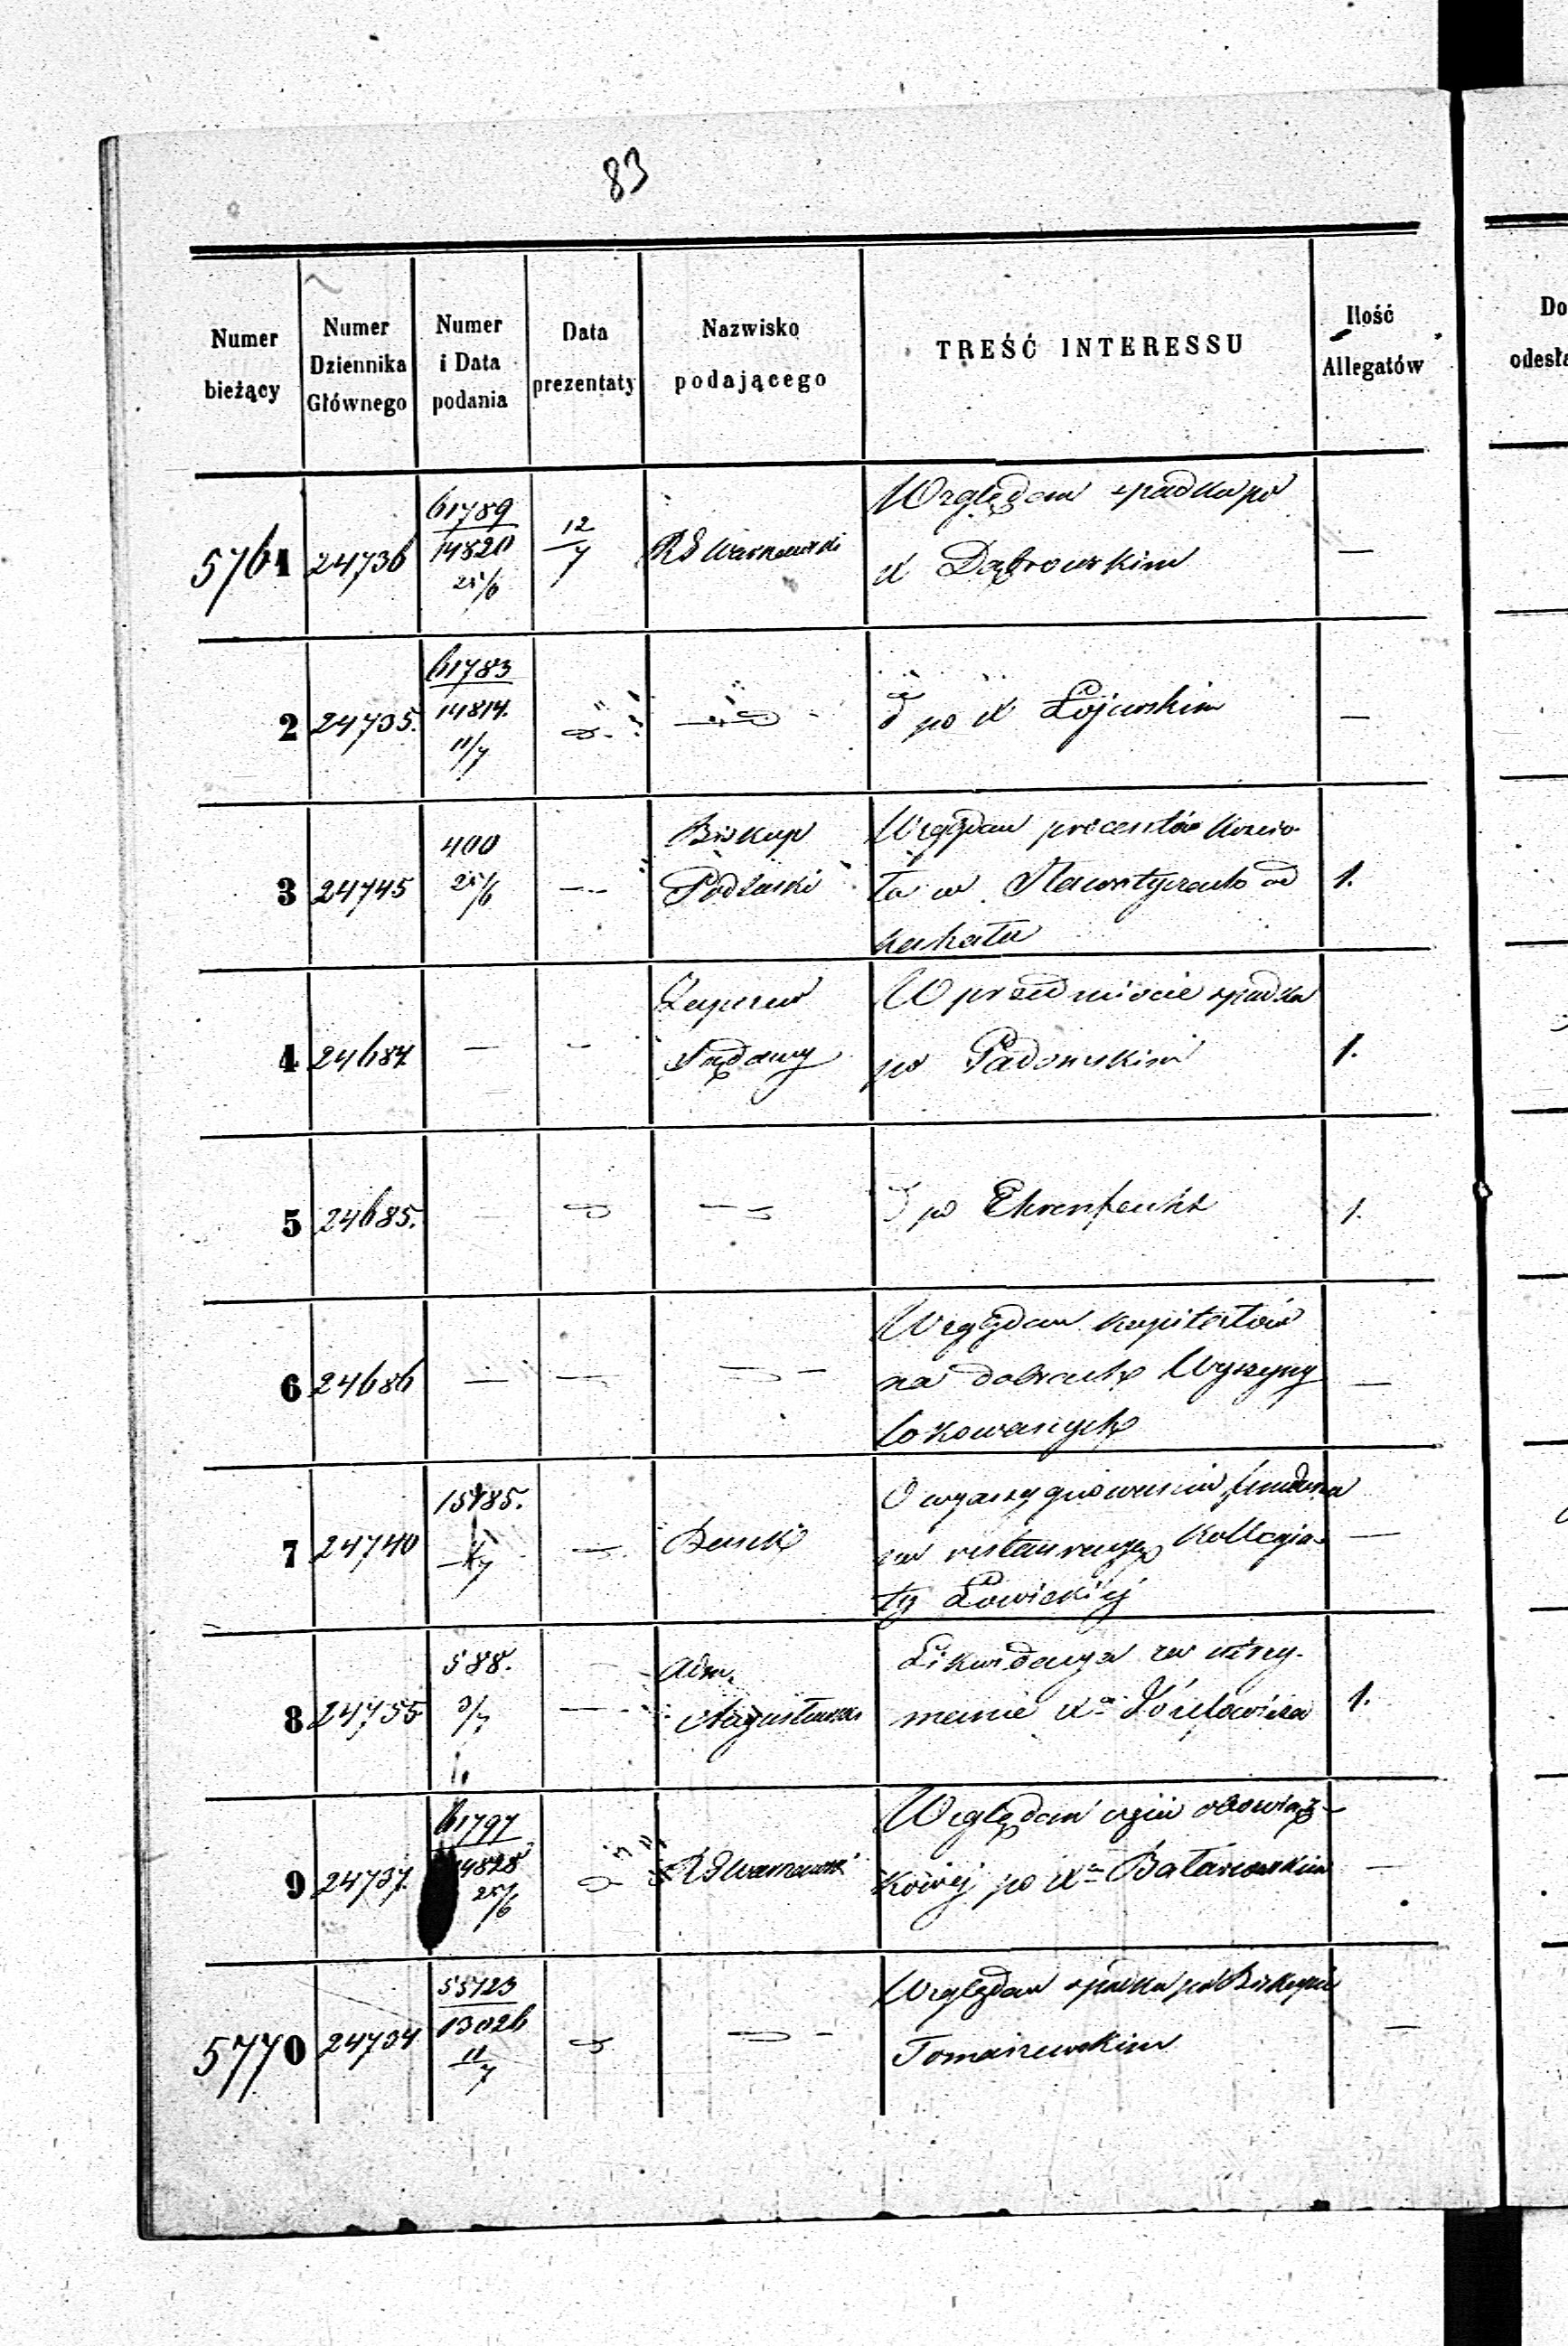 83
Numer bieżący
Numer Dziennika Głównego
Numer i Data podania
Data prezentaty
Nazwisko podającego
TREŚĆ INTERESSU
Ilość Allegatów
Do
odesła
5761 24736 61789 14820 25/6 12/7 RG Warszawski Względem spadku po
X Dąbrowskim —
2 24735. 61783 14814. 11/7 d po X Łojewskim —
3 24745 400 25/6 — Biskup Podlaski Względem procentów Kościo-
ła w Sławatyczach od
kahału 1.
4 24684 — - Sądowy W przedmiocie spadku
po Padowskim 1.
5 24685. — d po Ehrenfeucht 1.
6 24686 — — — Względem kapitałów
na dobrach Wyszyny
lokowanych —
7 24740 15485. — Bank O wyassygnowanie funduszu
na restauracyę Kollegia-
ty Łowickiej —
8 24755 588. 3/7 — Adm. Augustowski Likwidacya za utrzy-
manie Xa Józefowicza 1.
9 24737. 61797 14828 25/6 RG Warszawski Względem
po Xu —
5770 24734 55723 13026 11/7 — Względem spadku po Biskupie
Tomaszewskim —